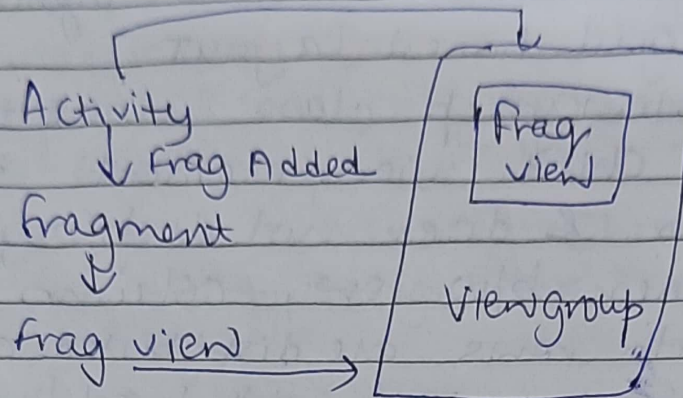 Activity
Frag Added
fragment
frag view
frag
view
Viewgroup